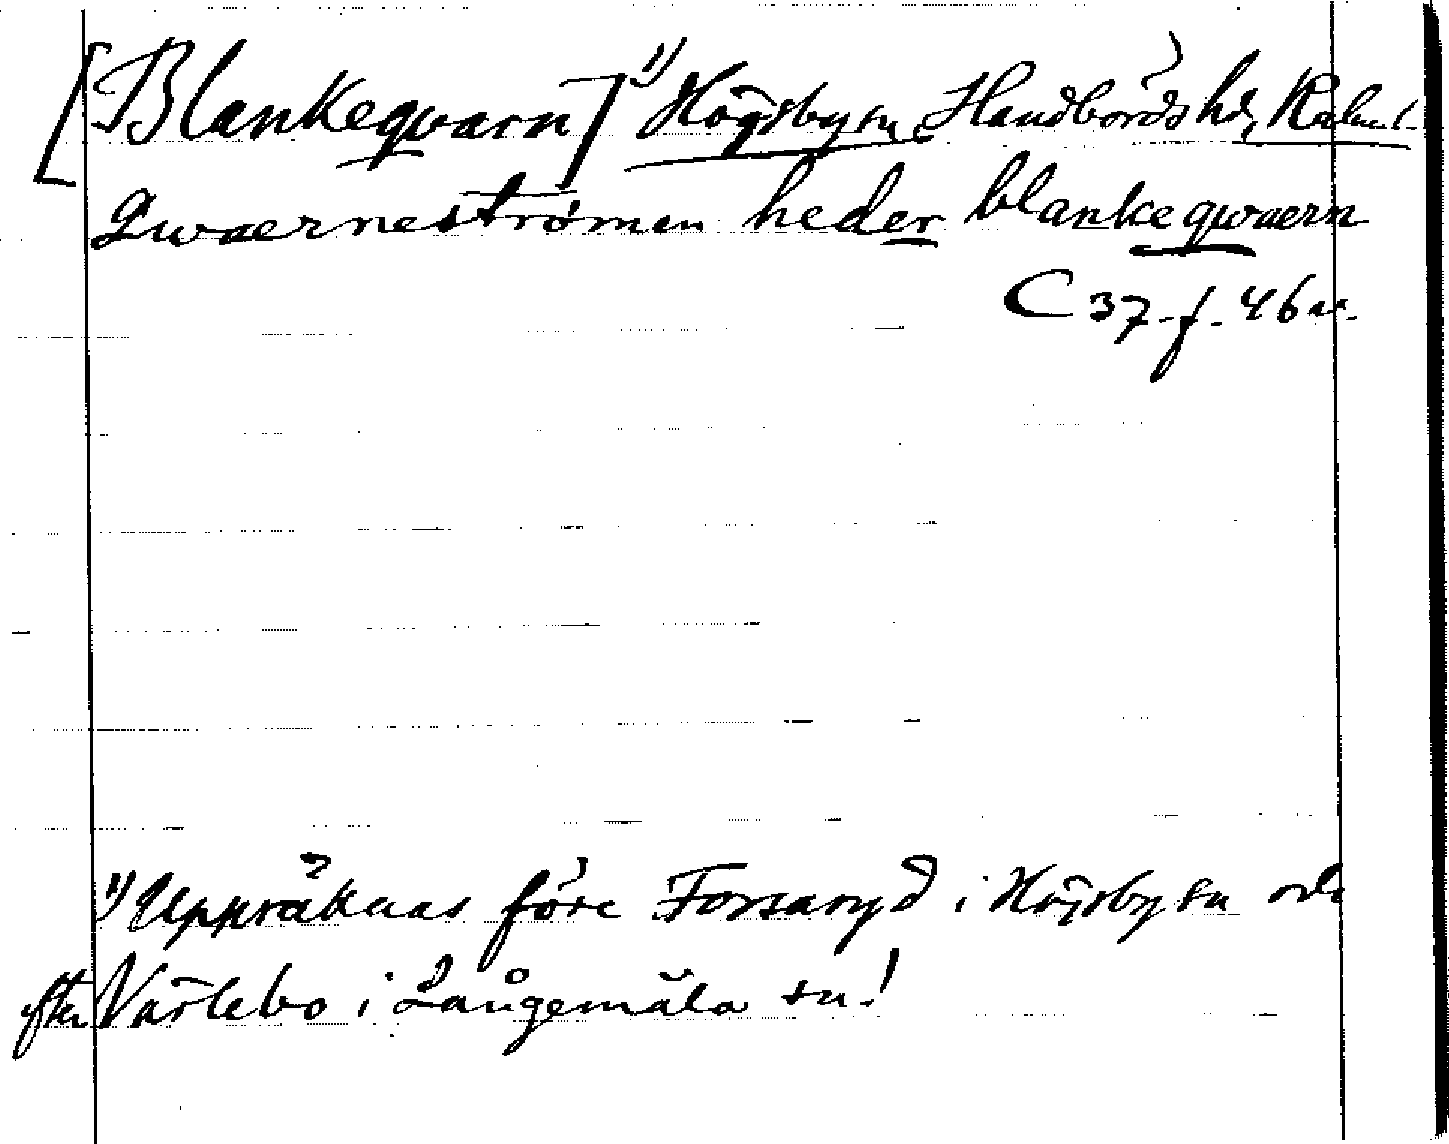 [Blankeqvarn] 1) Högsby sn, Handbörds hd, Kalm. l.
Qwaerneströmen heder blankeqwaern
C 37. f. 46 v.
1) Uppräknas före Forsaryd i Högsby sn och
efter Värlebo i Långemåla sn.!